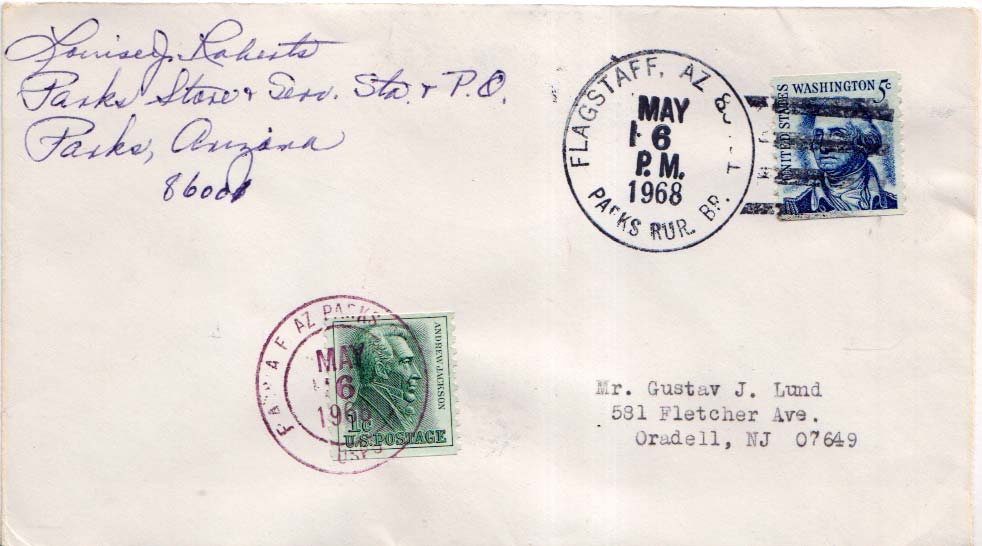 Louise J. Roberts
Parks Store & Serv. Sta. & P.O.
Parks, Arizona
86001
FLAGSTAFF, AZ &
MAY
6
P.M.
1968
PARKS RUR. BR.
UNITED STATES
WASHINGTON 5c
AZ PARKS
MAY
6
1968
USPO
ANDREW JACKSON
1c
U.S. POSTAGE
Mr. Gustav J. Lund
581 Fletcher Ave.
Oradell, NJ 07649